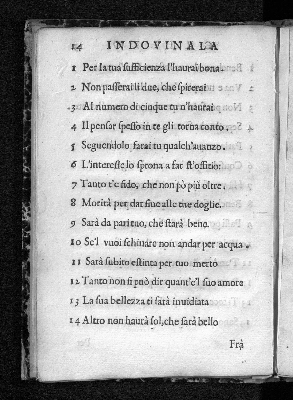 14 INDOVINALA
1 Per la tua sufficienza l'haurai bona.
2 Non passerai li due, che spierai
3 Al numero di cinque tu n'haurai
4 Il pensar spesso in te gli torna conto.
5 Seguendolo farai tu qualch'auanzo.
6 L'interesse lo sprona a far st'offitio.
7 Tanto t'è fido, che non pò più oltre.
8 Morirà per dar fine alle tue doglie.
9 Sarà da par tuo, che starà bene.
10 Se'l vuoi schiuare non andar per acqua
11 Sarà subito estinta per tuo merto
12 Tanto non si può dir quant'è'l suo amore
13 La sua bellezza ti sarà inuidiata
14 Altro non haurà sol, che sarà bello
Frà